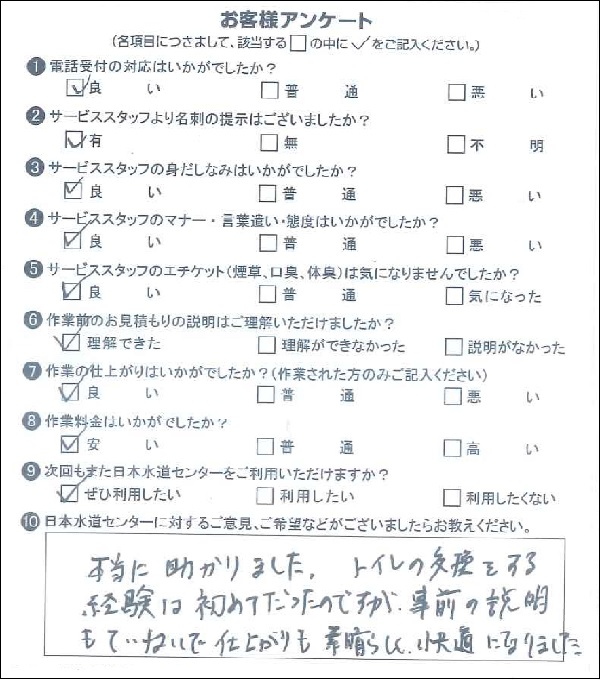 お客様アンケート
(各項目につきまして、該当する□の中に✓をご記入ください。)
❶ 電話受付の対応はいかがでしたか？
☑良 い □普 通 □悪 い
❷ サービススタッフより名刺の提示はございましたか？
☑有 □無 □不 明
❸ サービススタッフの身だしなみはいかがでしたか？
☑良 い □普 通 □悪 い
❹ サービススタッフのマナー・言葉遣い・態度はいかがでしたか？
☑良 い □普 通 □悪 い
❺ サービススタッフのエチケット(煙草、口臭、体臭)は気になりませんでしたか？
☑良 い □普 通 □気になった
❻ 作業前のお見積もりの説明はご理解いただけましたか？
☑理解できた □理解ができなかった □説明がなかった
❼ 作業の仕上がりはいかがでしたか？(作業された方のみご記入ください)
☑良 い □普 通 □悪 い
❽ 作業料金はいかがでしたか？
☑安 い □普 通 □高 い
❾ 次回もまた日本水道センターをご利用いただけますか？
☑ぜひ利用したい □利用したい □利用したくない
❿ 日本水道センターに対するご意見、ご希望などがございましたらお教えください。
本当に助かりました。トイレの交換をする
経験は初めてだったのですが、事前の説明
もていねいで仕上がりも素晴らしく、快適になりました